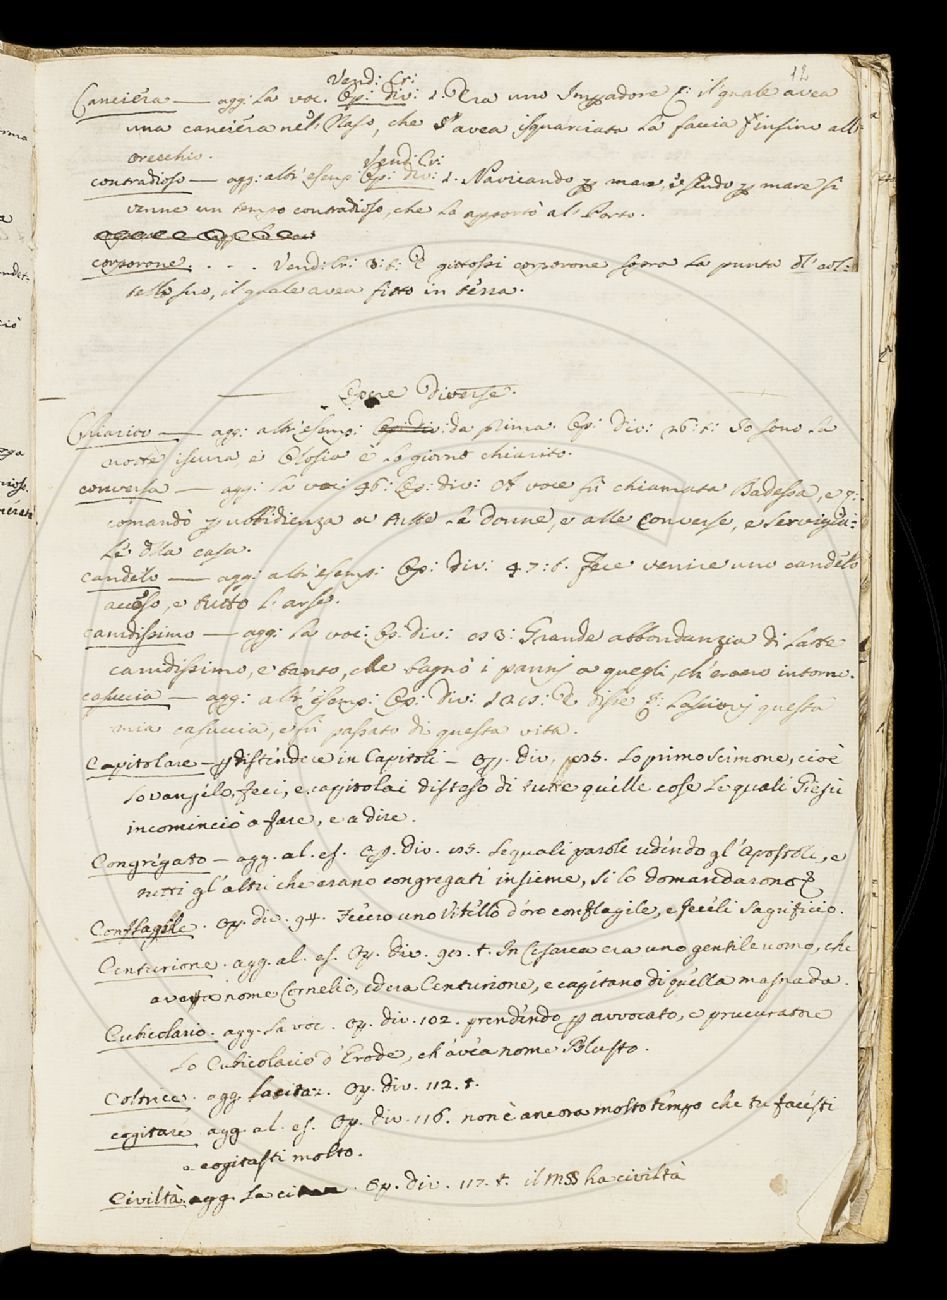 12
Vend: Cr:
Canciéra — agg: la voc. Op: div: 1. Era uno Impadore &: il quale avea
una canciéra nel Naso, che s'avea isquarciata la faccia infino all'
orecchio.
Vend: Cr:
contradioso — agg: altr'esemp: Op: div: 1. Navicando p mare, essendo p mare si
venne un tempo contradioso, che la apportò al Porto.
corporone. . . . Vend: Cr: 3: t: E gittossi corporone sopra la punta dl col-
tello suo, il quale avea fitto in terra.
Opere Diverse.
Chiarito — agg: altr'esemp: da prima. Op: div: 26: t: Io sono la
notte iscura e e lo giorno chiarito.
conversa — agg: la voc: 46: Op: div: A voce fù chiamata Badessa, e
comandò p ubbidienza a tutte le donne, e alle Converse, e servigia:
le dlla casa.
candélo — agg: altr'esemp: Op: div: 47: t. Fece venire uno candélo
accéso, e tutto l'arse.
candissimo — agg: la voc: Op: div: Grande abbondanzia di latte
candissimo, e tanto, che bagnò i pannj a quegli, ch'erano intorno.
casuccia — agg: altr'esemp: Op: div: E disse &: Lascionj questa
mia casuccia, e fù passato di questa vita.
Capitolare — p distendere in Capitoli — Op. div. Lo primo Sermone, cioè
lo vangélo, feci, e capitolai disteso di tutte quelle cose le quali Giesù
incominciò a fare, e a dire.
Congregato — agg. al. es. Op. div. le quali parole udendo gl'Apostoli, e
tutti gl'altri che erano congregati insieme, si lo domandarono &
Conflagile. Op. div. 94. Fécero uno Vitéllo d'oro conflagile, e fécéli Sagrificio.
Centurione. agg. al. es. Op. div. t. In Cesarea era uno gentile uomo, che
avea nome Cornelio, ed era Centurione, e capitano di quella masnada.
Cubicolario. agg. la voc. Op. div. 102. prendéndo p avvocato, e proccuratore
lo Cubicolario d'Erode, ch'avéa nome Blusto.
Coltrice. agg. la citaz. Op. div. 112. t.
cogitare agg. al. es. Op. div. 116. non è ancora molto témpo che tu facesti
e cogitasti molto.
Civiltà agg. la Op. div. 117. t. il MSS ha civiltà